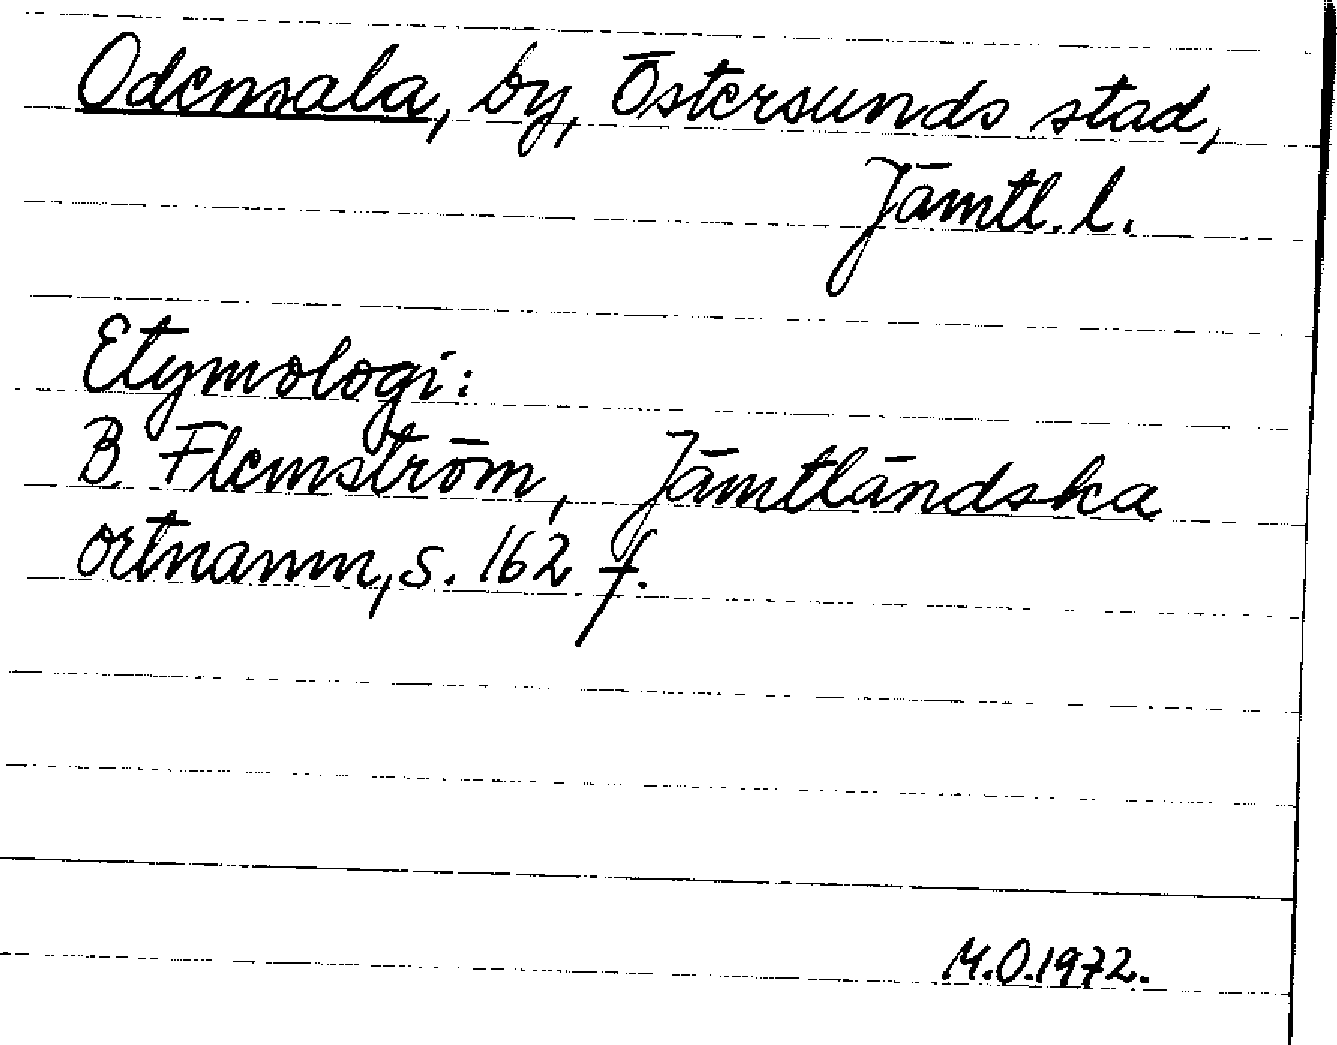 Odensala, by, Östersunds stad,
Jämtl. l.
Etymologi:
B. Flemström, Jämtländska
ortnamn, s. 162 f.
M.O.1972.